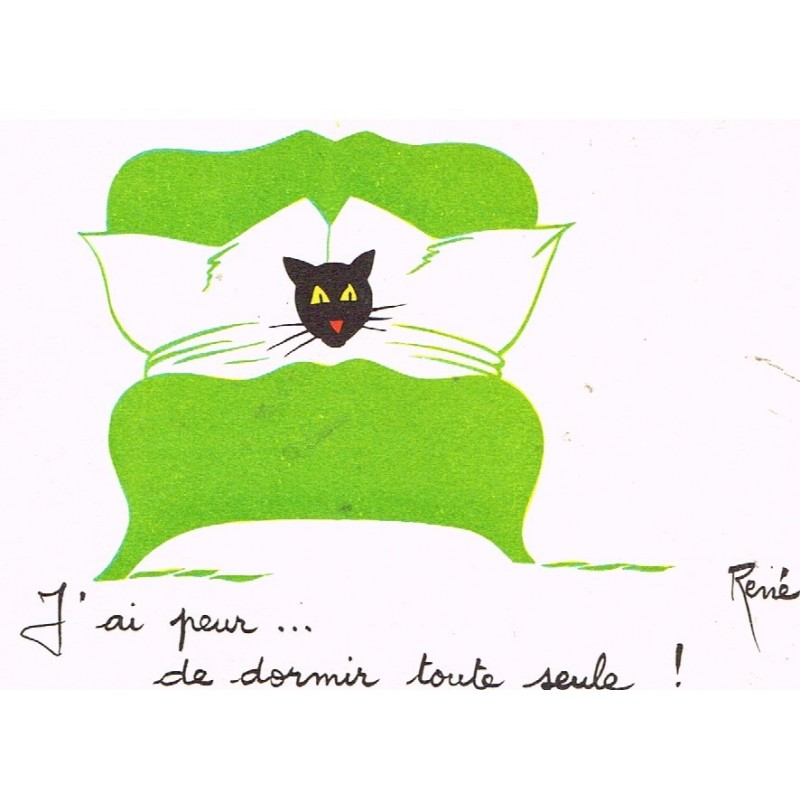 J'ai peur ...
de dormir toute seule !
René